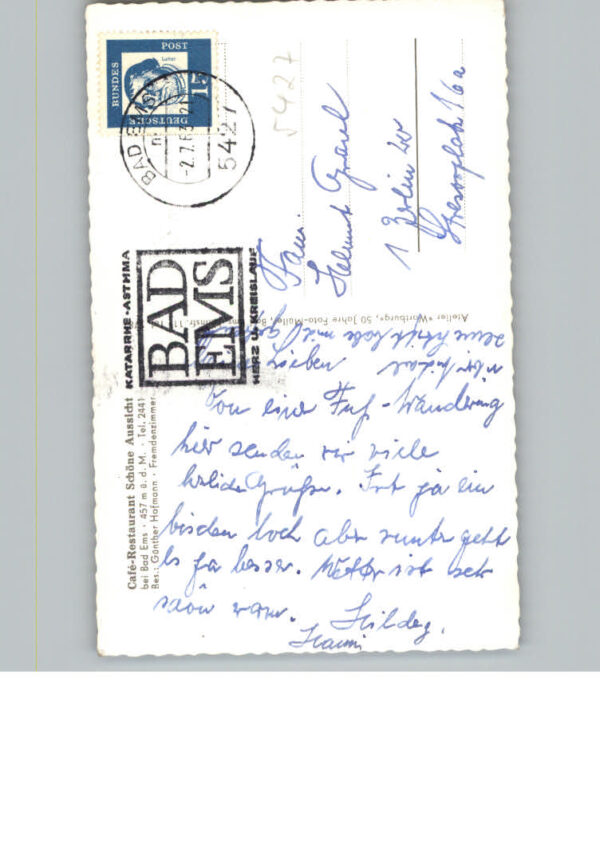 BUNDES
POST
DEUTSCHE
15
Luther
BAD EMS
-2.7.63
5427
5427
KATARRHE·ASTHMA
BAD
EMS
HERZ U. KREISLAUF
Fam.
Helmut
1 Berlin
16a
Atelier »Wartburg«, 50 Jahre Foto-Müller, Bad Ems
Café-Restaurant Schöne Aussicht
bei Bad Ems · 457 m ü. d. M. · Tel. 2441
Bes.: Günther Hofmann · Fremdenzimmer
Lieben
Von eine Fuß-Wanderung
hier senden wir viele
Grüße. Ist ja ein
bischen hoch aber runter geht
es ja besser. Wetter ist sehr
schön warm. Hildeg.
Hanni